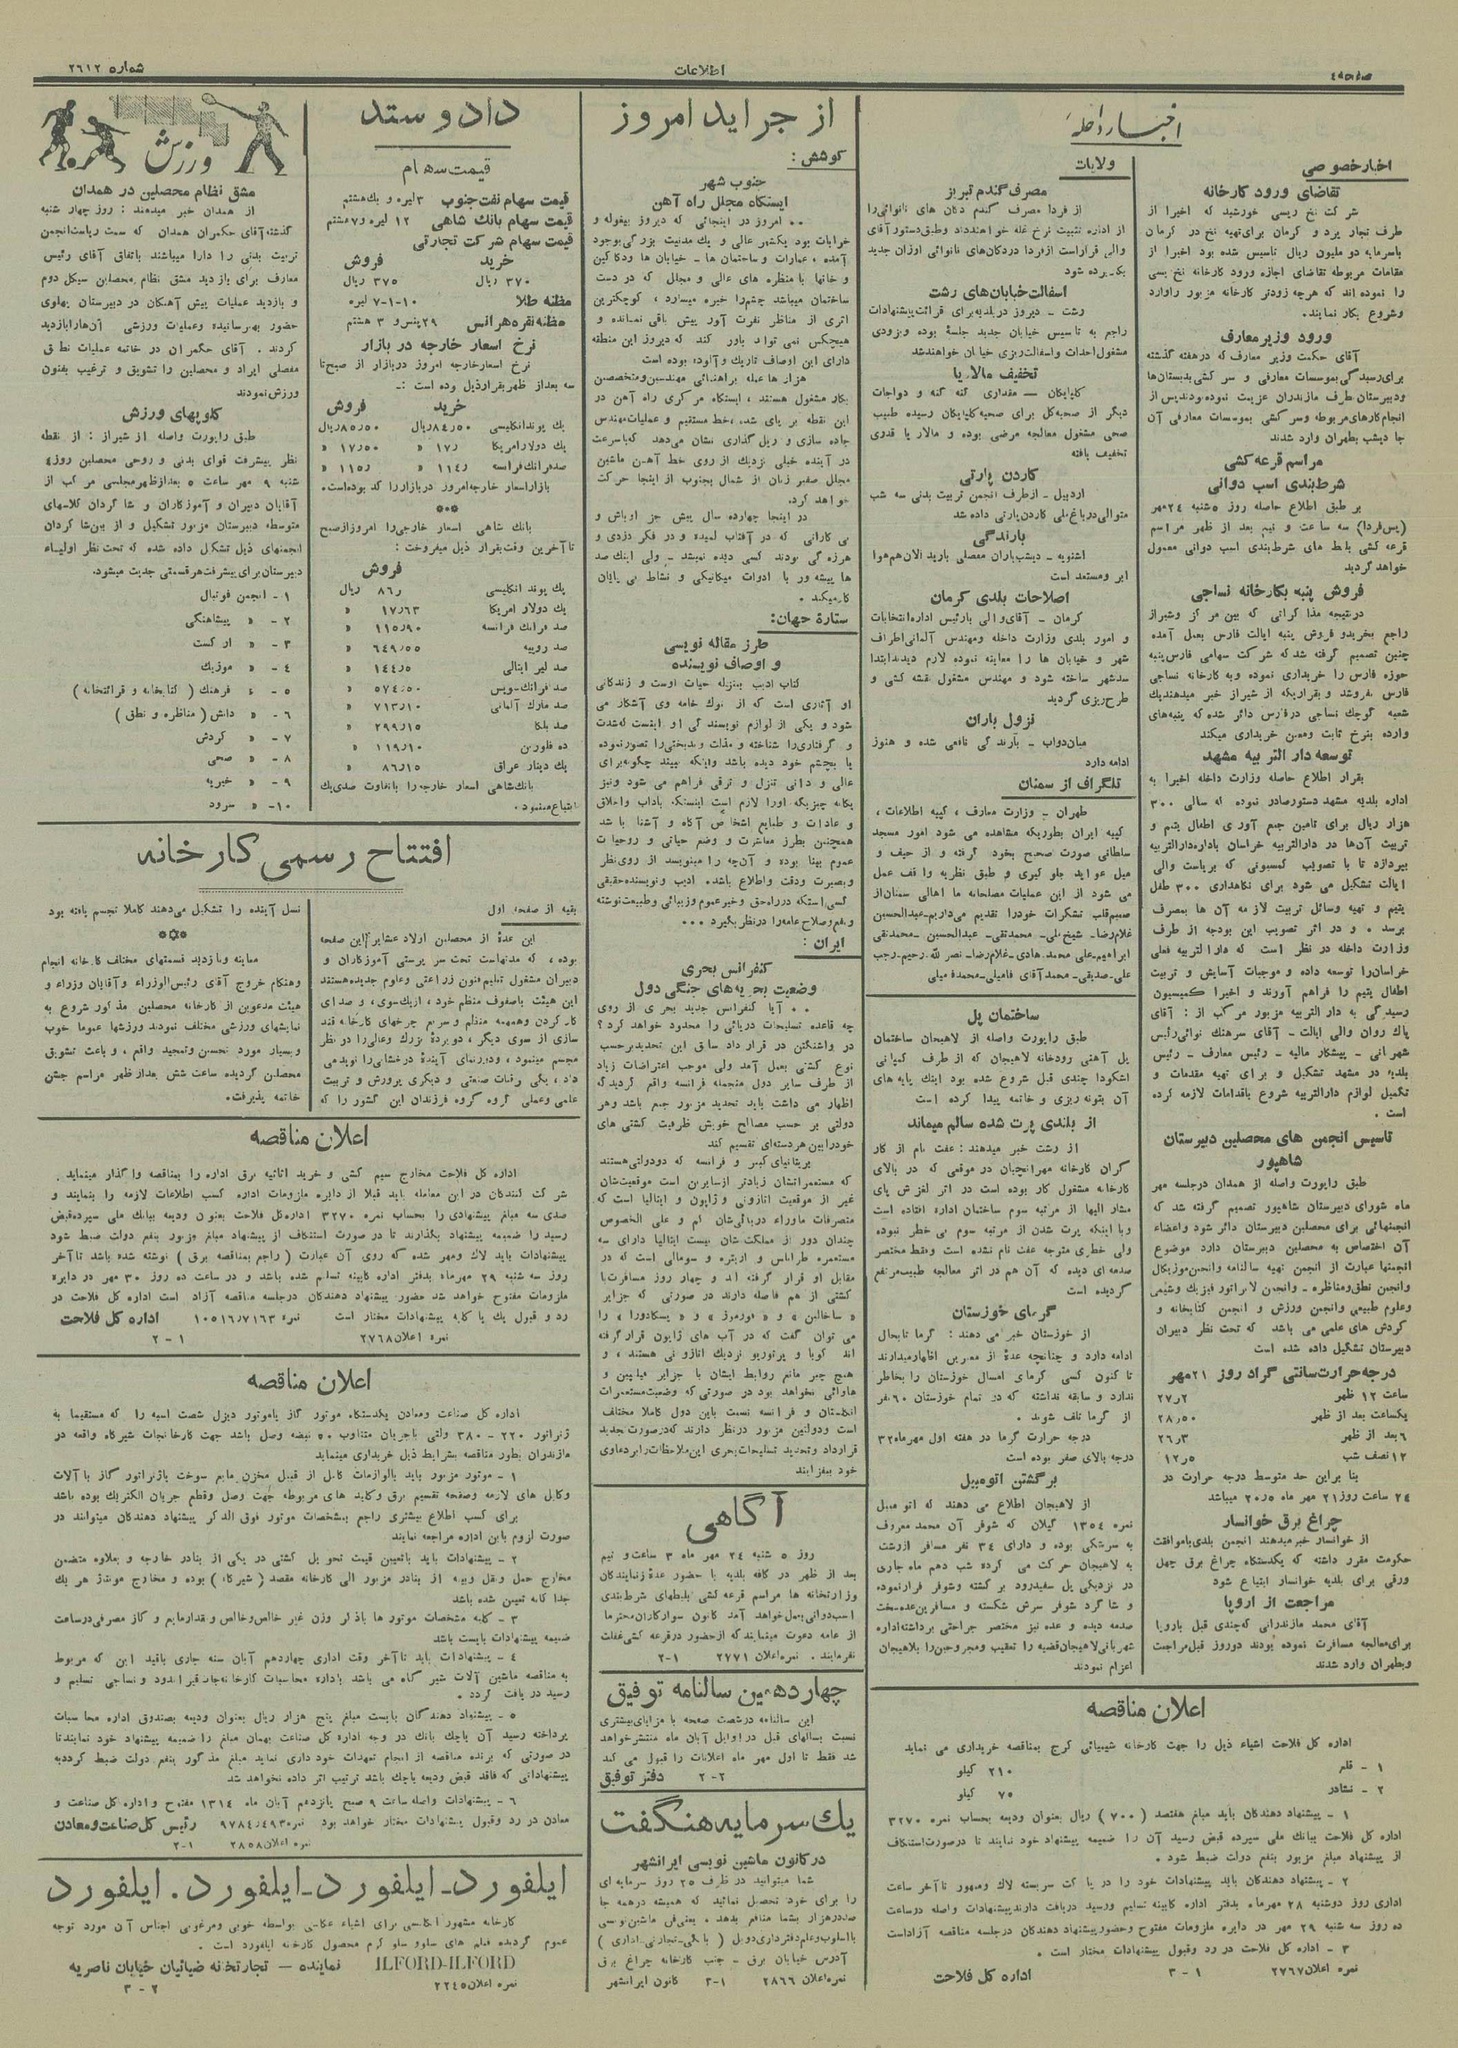 صفحه ٤
اطلاعات
شماره ٢٦١٢
اخبار داخله
اخبار خصوصی
تقاضای ورود کارخانه
شرکت نخ ریسی خورشید که اخیرا از
طرف تجار یزد و کرمان برای تهیه نخ در کرمان
باسرمایه دو ملیون ریال تاسیس شده بود اخیرا از
مقامات مربوطه تقاضای اجازه ورود کارخانه نخ ریسی
را نموده اند که هرچه زودتر کارخانه مزبور را وارد
وشروع بکار نمایند.
ورود وزیر معارف
آقای حکمت وزیر معارف که در هفته گذشته
برای رسیدگی بموسسات معارفی و سرکشی بدبستان‌ها
ودبیرستان طرف مازندران عزیمت نموده بودند پس از
انجام کارهای مربوطه وسرکشی بموسسات معارفی آن
جا دیشب بطهران وارد شدند
مراسم قرعه کشی
شرط‌بندی اسب دوانی
بر طبق اطلاع حاصله روز ٥شنبه ٢٤مهر
(پس‌فردا) سه ساعت و نیم بعد از ظهر مراسم
قرعه کشی بلط های شرط‌بندی اسب دوانی معمول
خواهد گردید
فروش پنبه بکارخانه نساجی
درنتیجه مذاکراتی که بین مرکز وشیراز
راجع بخریدو فروش پنبه ایالت فارس بعمل آمده
چنین تصمیم گرفته شد که شرکت سهامی فارس پنبه
حوزه فارس را خریداری نموده وبه کارخانه نساجی
فارس بفروشد و بقراریکه از شیراز خبر میدهند یک
شعبه کوچک نساجی در فارس دائر شده که پنبه‌های
وارده بنرخ ثابت ومعین خریداری میکند
توسعه دار التربیه مشهد
بقرار اطلاع حاصله وزارت داخله اخیرا به
اداره بلدیه مشهد دستور صادر نموده که سالی ٣٠٠
هزار ریال برای تامین جمع آوری اطفال یتیم و
تربیت آن‌ها در دارالتربیه خراسان باداره دارالتربیه
بپردازد تا با تصویب کمیسیونی که بریاست والی
ایالت تشکیل می شود برای نگاهداری ٣٠٠ طفل
یتیم و تهیه وسائل تربیت لازمه آن ها بمصرف
برسد . و در اثر تصویب این بودجه از طرف
وزارت داخله در نظر است که دارالتربیه فعلی
خراسان‌را توسعه داده و موجبات آسایش و تربیت
اطفال یتیم را فراهم آورند و اخیرا کمیسیون
رسیدگی به دار التربیه مزبور مرکب از : آقای
پاک روان والی ایالت - آقای سرهنگ نوائی رئیس
شهربانی - پیشکار مالیه - رئیس معارف - رئیس
بلدیه در مشهد تشکیل و برای تهیه مقدمات و
تکمیل لوازم دارالتربیه شروع باقدامات لازمه کرده
است .
تاسیس انجمن های محصلین دبیرستان
شاهپور
طبق راپورت واصله از همدان درجلسه مهر
ماه شورای دبیرستان شاهپور تصمیم گرفته شد که
انجمنهائی برای محصلین دبیرستان دائر شود واعضاء
آن اختصاص به محصلین دبیرستان دارد موضوع
انجمنها عبارت از انجمن تهیه سالنامه وانجمن موزیکال
وانجمن نطق ومناظره - وانجمن لابراتوار فیزیک وشیمی
وعلوم طبیعی وانجمن ورزش و انجمن کتابخانه و
گردش های علمی می باشد که تحت نظر دبیران
دبیرستان تشکیل داده شده است
درجه حرارت سانتی گراد روز ٢١مهر
ساعت ١٢ ظهر ٢٧٫٢
یکساعت بعد از ظهر ٢٨٫٥٠
٦ بعد از ظهر ٢٦٫٣
١٢ نصف شب ١٢٫٥
بنا براین حد متوسط درجه حرارت در
٢٤ ساعت روز٢١ مهر ماه ٢٠٫٥ میباشد
چراغ برق خوانسار
از خوانسار خبر میدهند انجمن بلدی باموافقت
حکومت مقرر داشته که یکدستگاه چراغ برق چهل
ورقی برای بلدیه خوانسار ابتیاع شود
مراجعت از اروپا
آقای محمد مازندرانی که‌چندی قبل باروپا
برای معالجه مسافرت نموده بودند دوروز قبل مراجعت
وبطهران وارد شدند
ولایات
مصرف گندم تبریز
از فردا مصرف گندم دکان های نانوائی را
از اداره تثبیت نرخ غله خواهند داد و طبق دستور آقای
والی قرار است از فردا در دکان‌های نانوائی اوزان جدید
بکار برده شود
اسفالت خیابان‌های رشت
رشت - دیروز در بلدیه برای قرائت پیشنهادات
راجع به تاسیس خیابان جدید جلسهٔ بوده و بزودی
مشغول احداث واسفالت‌ریزی خیابان خواهند شد
تخفیف مالاریا
گلپایگان - مقداری گنه گنه و دواجات
دیگر از صحیه کل برای صحیه گلپایگان رسیده طبیب
صحی مشغول معالجه مرضی بوده و مالاریا قدری
تخفیف یافته
گاردن پارتی
اردبیل - از طرف انجمن تربیت بدنی سه شب
متوالی در باغ ملی گاردن پارتی داده شد
بارندگی
اشنویه - دیشب باران مفصلی بارید الان هم هوا
ابر ومستعد است
اصلاحات بلدی کرمان
کرمان - آقای والی با رئیس اداره انتخابات
و امور بلدی وزارت داخله ومهندس آلمانی اطراف
شهر و خیابان ها را معاینه نموده لازم دیدند ابتدا
سد شهر ساخته شود و مهندس مشغول نقشه کشی و
طرح ریزی گردید
نزول باران
میان‌دواب - بارندگی نافعی شده و هنوز
ادامه دارد
تلگراف از سمنان
طهران - وزارت معارف ، کپیه اطلاعات ،
کپیه ایران بطوریکه مشاهده می شود امور مسجد
سلطانی صورت صحیح بخود گرفته و از حیف و
میل عواید جلو گیری و طبق نظریه واقف عمل
می شود از این عملیات مصلحانه ما اهالی سمنان از
صمیم قلب تشکرات خودرا تقدیم می‌داریم - عبدالحسین
غلام رضا - شیخ علی - محمدتقی - عبدالحسین - محمدتقی
ابراهیم - علی محمد - هادی - غلام رضا - نصر الله - رحیم - رجب
علی - صدیقی - محمد آقای فامیلی - محمد فامیلی
ساختمان پل
طبق راپورت واصله از لاهیجان ساختمان
پل آهنی رودخانه لاهیجان که از طرف کمپانی
اشکودا چندی قبل شروع شده بود اینک پایه های
آن بتونه ریزی و خاتمه پیدا کرده است
از بلندی پرت شده سالم میماند
از رشت خبر میدهند : عفت نام از کار
گران کارخانه مهرانچیان در موقعی که در بالای
کارخانه مشغول کار بوده است در اثر لغزش پای
مشار الیها از مرتبه سوم ساختمان اداره افتاده است
و با اینکه پرت شدن از مرتبه سوم بی خطر نبوده
ولی خطری متوجه عفت نام نشده است وفقط مختصر
صدمه‌ای دیده که آن هم در اثر معالجه طبیب مرتفع
گردیده است
گرمای خوزستان
از خوزستان خبر می دهند : گرما تابحال
ادامه دارد و چنانچه عدهٔ از معمرین اظهار میدارند
تا کنون کسی گرمای امسال خوزستان را بخاطر
ندارد و سابقه نداشته که در تمام خوزستان ٦٠ نفر
از گرما تلف شوند .
درجه حرارت گرما در هفته اول مهرماه ٣٢
درجه بالای صفر بوده است
برگشتن اتومبیل
از لاهیجان اطلاع می دهند که اتومبیل
نمره ١٣٥٤ گیلان که شوفر آن محمد معروف
به سرشکی بوده و دارای ٣٤ نفر مسافر از رشت
به لاهیجان حرکت می کرده شب دهم ماه جاری
در نزدیکی پل سفیدرود بر گشته وشوفر فرار نموده
و شاگرد شوفر سرش شکسته و مسافرین عده سخت
صدمه دیده و عده نیز مختصر جراحتی برداشته اداره
شهربانی لاهیجان قضیه را تعقیب ومجروحین را بلاهیجان
اعزام نمودند
اعلان مناقصه
اداره کل فلاحت اشیاء ذیل را جهت کارخانه شیمیائی کرج بمناقصه خریداری می نماید
١ - قلع ٢١٠ کیلو
٢ - نشادر ٧٥ کیلو
١ - پیشنهاد دهندگان باید مبلغ هفتصد (٧٠٠) ریال بعنوان ودیعه بحساب نمره ٣٢٧٠
اداره کل فلاحت ببانک ملی سپرده قبض رسید آن را ضمیمه پیشنهاد خود نمایند تا درصورت استنکاف
از پیشنهاد مبلغ مزبور بنفع دولت ضبط شود .
٢ - پیشنهاد دهندگان باید پیشنهادات خود را در پاکت سربسته لاک ومهور تا آخر ساعت
اداری روز دوشنبه ٢٨ مهرماه بدفتر اداره کابینه تسلیم ورسید دریافت دارند پیشنهادات واصله در ساعت
ده روز سه شنبه ٢٩ مهر در دایره ملزومات مفتوح وحضور پیشنهاد دهندگان درجلسه مناقصه آزاد است
٣ - اداره کل فلاحت در رد وقبول پیشنهادات مختار است .
نمره اعلان ٢٧٦٧ ١ - ٣ اداره کل فلاحت
از جراید امروز
کوشش :
جنوب شهر
ایستگاه مجلل راه آهن
. . امروز در اینجائی که دیروز بیغوله و
خرابات بود یکشهر عالی و یک مدنیت بزرگی بوجود
آمده ، عمارات و ساختمان ها - خیابان ها ودکاکین
و خانها با منظره های عالی و مجلل که در دست
ساختمان میباشد چشم را خیره میسازد ، کوچکترین
اثری از مناظر نفرت آور پیش باقی نمانده و
هیچکس نمی تواند باور کند که دیروز این منطقه
دارای این اوصاف تاریک و آلوده بوده است
هزار ها عمله براهنمائی مهندسین ومتخصصین
بکار مشغول هستند ، ایستگاه مرکزی راه آهن در
این نقطه بر پای شده ، خط مستقیم و عملیات مهندس
جاده سازی و ریل گذاری نشان می‌دهد که با سرعت
در آینده خیلی نزدیک از روی خط آهن ماشین
مجلل صفیر زنان از شمال بجنوب از اینجا حرکت
خواهد کرد.
در اینجا چهارده سال پیش جز اوباش و
بی کارانی که در آفتاب لمیده و در فکر دزدی و
هرزه گی بودند کسی دیده نمیشد - ولی اینک صد
ها پیشه ور با ادوات میکانیکی و نشاط بی پایان
کار میکند .
ستارهٔ جهان :
طرز مقاله نویسی
و اوصاف نویسنده
کتاب ادیب بمنزله حیات اوست و زندگانی
او آثاری است که از نوک خامه وی آشکار می
شود و یکی از لوازم نویسندگی او اینست که شدت
و گرفتاری را شناخته و مذلت وبدبختی را تصور نموده
یا بچشم خود دیده باشد و اینکه ببیند چگونه برای
عالی و دانی تنزل و ترقی فراهم می شود ونیز
یگانه چیزیکه اورا لازم است اینستکه باداب واخلاق
و عادات و طبایع اشخاص آگاه و آشنا باشد
همچنین بطرز معاشرت و وضع حیاتی و روحیات
عموم بینا بوده و آن‌چه را مینویسد از روی نظر
وبصیرت ودقت واطلاع باشد. ادیب و نویسنده حقیقی
کسی استکه در راه حق و خیر عموم وزیبائی و طبیعت نوشته
ونفع وصلاح عامه را درنظر بگیرد . . .
ایران :
کنفرانس بحری
وضعیت بحریه‌های جنگی دول
. . آیا کنفرانس جدید بحری از روی
چه قاعده تسلیحات دریائی را محدود خواهد کرد؟
در واشنگتن در قرار داد سابق این تحدید برحسب
نوع کشتی بعمل آمد ولی موجب اعتراضات زیاد
از طرف سایر دول منجمله فرانسه واقع گردید که
اظهار می داشت باید تحدید مزبور جمع باشد وهر
دولتی بر حسب مصالح خویش ظرفیت کشتی های
خودرابین هر دسته‌ای تقسیم کند
بریتانیای کبیر و فرانسه که دو دولتی هستند
که مستعمراتشان زیادتر از سایرین است موقعیت‌شان
غیر از موقعیت اتازونی و ژاپون و ایتالیا است که
متصرفات ماوراء دریائی‌شان کم و علی الخصوص
چندان دور از مملکت‌شان نیست ایتالیا دارای سه
مستعمره طرابلس و اریتره و سومالی است که در
مقابل او قرار گرفته اند و چهار روز مسافرت با
کشتی از هم فاصله دارند در صورتی که جزایر
« ساخالین » و « فورموز » و « پسکادورا » را
می توان گفت که در آب های ژاپون قرار گرفته
اند کوبا و پرتوریو نزدیک اتازونی هستند ، و
هیچ چیز مانع روابط ایشان با جزایر فیلیپین و
هاوائی نخواهد بود در صورتی که وضعیت مستعمرات
انگلستان و فرانسه نسبت باین دول کاملا مختلف
است ودولتین مزبور درنظر دارند که در صورت تجدید
قرارداد وتحدید تسلیحات بحری این ملاحظات را بردعاوی
خود بیفزایند
آگاهی
روز ٥ شنبه ٢٤ مهر ماه ٣ ساعت و نیم
بعد از ظهر در کافه بلدیه با حضور عدهٔ نمایندگان
وزارتخانه ها مراسم قرعه کشی بلط‌های شرط‌بندی
اسب‌دوانی بعمل خواهد آمد کانون سوارکاران محترما
از عامه دعوت مینماید که از حضور در قرعه کشی غفلت
نفرمایند . نمره اعلان ٢٧٧١ ١-٢
چهاردهمین سالنامه توفیق
این سالنامه درشصت صفحه با مزایای بیشتری
نسبت بسالهای قبل در اوایل آبان ماه منتشر خواهد
شد فقط تا اول مهر ماه اعلانات را قبول می کند
٢-٢ دفتر توفیق
یک سرمایه هنگفت
در کانون ماشین نویسی ایرانشهر
شما میتوانید در ظرف ٢٥ روز سرمایه ای
را برای خود تحصیل نمائید که همیشه در همه جا
صد در هزار بشما منافع بدهد . یعنی فن ماشین نویسی
بااسلوب وعلم دفترداری دوبل ( بانکی - تجارتی - اداری )
آدرس خیابان برق - جنب کارخانه چراغ برق
نمره اعلان ٢٨٦٦ ١-٣ کانون ایرانشهر
داد و ستد
قیمت سهام
قیمت سهام نفت جنوب ٣ لیره و یک هشتم
قیمت سهام بانک شاهی ١٢ لیره و ٧ هشتم
قیمت سهام شرکت تجارتی
خرید فروش
٣٧٠ ریال ٣٧٥ ریال
مظنه طلا ٧-١-١٠ لیره
مظنه نقره هرانس ٢٩ پنس و ٣ هشتم
نرخ اسعار خارجه در بازار
نرخ اسعار خارجه امروز در بازار از صبح تا
سه بعد از ظهر بقرار ذیل بوده است :-
خرید فروش
یک پوند انگلیسی ٨٤٫٥٠ ریال ٨٥٫٥٠ ریال
یک دولار امریکا ١٧٫ « ١٧٫٥٠ «
صد فرانک فرانسه ١١٤٫ « ١١٥٫ «
بازار اسعار خارجه امروز در بازار راکد بوده است.
***
بانک شاهی اسعار خارجی را امروز از صبح
تا آخرین وقت بقرار ذیل میفروخت :
فروش
یک پوند انگلیسی ٨٦٫ ریال
یک دولار امریکا ١٧٫٦٣ «
صد فرانک فرانسه ١١٥٫٩٠ «
صد روپیه ٦٤٩٫٥٥ «
صد لیر ایتالی ١٤٤٫٥ «
صد فرانک سویس ٥٧٤٫٥٠ «
صد مارک آلمانی ٧١٣٫١٠ «
صد بلگا ٢٩٩٫١٥ «
ده فلورین ١١٩٫١٠ «
یک دینار عراق ٨٦٫١٥ «
بانک شاهی اسعار خارجه را بتفاوت صدی یک
ابتیاع مینمود .
ورزش
مشق نظام محصلین در همدان
از همدان خبر میدهند : روز چهار شنبه
گذشته آقای حکمران همدان که سمت ریاست انجمن
تربیت بدنی را دارا میباشند باتفاق آقای رئیس
معارف برای بازدید مشق نظام محصلین سیکل دوم
و بازدید عملیات پیش آهنگان در دبیرستان پهلوی
حضور بهم رسانیده وعملیات ورزشی آن‌ها را بازدید
کردند . آقای حکمران در خاتمه عملیات نطق
مفصلی ایراد و محصلین را تشویق و ترغیب بفنون
ورزش نمودند
کلوپهای ورزش
طبق راپورت واصله از شیراز : از نقطه
نظر پیشرفت قوای بدنی و روحی محصلین روز ٤
شنبه ٩ مهر ساعت ٥ بعد از ظهر مجلسی مرکب از
آقایان دبیران و آموزگاران و شاگردان کلاسهای
متوسطه دبیرستان مزبور تشکیل و از بین شاگردان
انجمنهای ذیل تشکیل داده شده که تحت نظر اولیاء
دبیرستان برای پیشرفت هر قسمتی جدیت میشود.
١ - انجمن فوتبال
٢ - « پیشاهنگی
٣ - « ارکست
٤ - « موزیک
٥ - « فرهنگ ( کتابخانه و قرائتخانه )
٦ - « دانش ( مناظره و نطق )
٧ - « گردش
٨ - « صحی
٩ - « خیریه
١٠ - « سرود
افتتاح رسمی کارخانه
بقیه از صفحه اول
این عدهٔ از محصلین اولاد عشایر این صفحه
بوده ، که مدتهاست تحت سر پرستی آموزگاران و
دبیران مشغول تعلیم فنون زراعتی وعلوم جدیده هستند
این هیئت باصفوف منظم خود ، از یک سوی ، و صدای
کار کردن وهمهمه منظم و سریع چرخهای کارخانه قند
سازی از سوی دیگر ، دو پردهٔ بزرگ وعالی را در نظر
مجسم مینمود ، ودورنمای آیندهٔ درخشانی را نوید می
داد ، یکی ترقیات صنعتی و دیگری پرورش و تربیت
علمی وعملی گروه گروه فرزندان این کشور را که
نسل آینده را تشکیل می‌دهند کاملا تجسم یافته بود
*✡*
معاینه وبازدید قسمتهای مختلف کارخانه انجام
وهنگام خروج آقای رئیس‌الوزراء و آقایان وزراء و
هیئت مدعوین از کارخانه محصلین مذکور شروع به
نمایشهای ورزشی مختلف نمودند ورزشها عموما خوب
وبسیار مورد تحسین وتمجید واقع ، و باعث تشویق
محصلین گردیده ساعت شش بعد از ظهر مراسم جشن
خاتمه پذیرفت.
اعلان مناقصه
اداره کل فلاحت مخارج سیم کشی و خرید اثاثیه برق اداره را بمناقصه واگذار مینماید .
شرکت کنندگان در این معامله باید قبلا از دایره ملزومات اداره کسب اطلاعات لازمه را بنمایند و
صدی سه مبلغ پیشنهادی را بحساب نمره ٣٢٧٠ اداره کل فلاحت بعنوان ودیعه ببانک ملی سپرده قبض
رسید را ضمیمه پیشنهاد بگذارند تا در صورت استنکاف از پیشنهاد مبلغ مزبور بنفع دولت ضبط شود
پیشنهادات باید لاک ومهر شده که روی آن عبارت ( راجع بمناقصه برق ) نوشته شده باشد تا آخر
روز سه شنبه ٢٩ مهرماه بدفتر اداره کابینه تسلیم شده باشد و در ساعت ده روز ٣٠ مهر در دایره
ملزومات مفتوح خواهد شد حضور پیشنهاد دهندگان درجلسه مناقصه آزاد است اداره کل فلاحت در
رد و قبول یک یا کلیه پیشنهادات مختار است نمره ١٠٥١٦٫٧١٦٣ اداره کل فلاحت
نمره اعلان ٢٧٦٨ ١ - ٢
اعلان مناقصه
اداره کل صناعت ومعادن یکدستگاه موتور گاز یا موتور دیزل شصت اسبه را که مستقیما به
ژنراتور ٢٢٠ - ٣٨٠ ولتی باجریان متناوب ٥٠ نبضه وصل باشد جهت کارخانجات شیرگاه واقعه در
مازندران بطور مناقصه بشرایط ذیل خریداری مینماید
١ - موتور مزبور باید بالوازمات کامل از قبیل مخزن مایع سوخت یا ژنراتور گاز با آلات
وکابل های لازمه وصفحه تقسیم برق وکلید های مربوطه جهت وصل وقطع جریان الکتریک بوده باشد
برای کسب اطلاع بیشتری راجع بمشخصات موتور فوق الذکر پیشنهاد دهندگان میتوانند در
صورت لزوم باین اداره مراجعه نمایند
٢ - پیشنهادات باید باتعیین قیمت تحویل کشتی در یکی از بنادر خارجه و بعلاوه متضمن
مخارج حمل ونقل وبیمه از بنادر مزبور الی کارخانه مقصد ( شیرگاه ) بوده و مخارج مونتاژ هر یک
جدا گانه تعیین شده باشد
٣ - کلیه مشخصات موتور ها باذکر وزن غیر خالص وخالص و مقدار مایع و گاز مصرفی در ساعت
ضمیمه پیشنهادات بایست باشد
٤ - پیشنهادات باید تا آخر وقت اداری چهاردهم آبان سنه جاری باقید این که مربوط
به مناقصه ماشین آلات شیر گاه می باشد باداره محاسبات کارخانه‌جات قیراندود و نساجی تسلیم و
رسید دریافت گردد .
٥ - پیشنهاد دهندگان بایست مبلغ پنج هزار ریال بعنوان ودیعه بصندوق اداره محاسبات
پرداخته رسید آن یا چک بانک در وجه اداره کل صناعت بهمان مبلغ را ضمیمه پیشنهاد خود نمایند تا
در صورتی که برنده مناقصه از انجام تعهدات خود داری نماید مبلغ مذکور بنفع دولت ضبط گردد به
پیشنهاداتی که فاقد قبض ودیعه یا چک باشد ترتیب اثر داده نخواهد شد
٦ - پیشنهادات واصله ساعت ٩ صبح پانزدهم آبان ماه ١٣١٤ مفتوح و اداره کل صناعت و
معادن در رد وقبول پیشنهادات مختار خواهد بود نمره ٩٧٨٤٫٤٩٣ رئیس کل صناعت ومعادن
نمره اعلان ٢٨٥٨ ١-٢
ایلفورد - ایلفورد - ایلفورد . ایلفورد
کارخانه مشهور انگلیسی برای اشیاء عکاسی بواسطه خوبی ومرغوبی اجناس آن مورد توجه
عموم گردیده فیلم های سلو و سلو کرم محصول کارخانه ایلفورد است .
ILFORD-ILFORD نماینده - تجارتخانه ضیائیان خیابان ناصریه
نمره اعلان ٢٢٤٥ ٢ - ٣